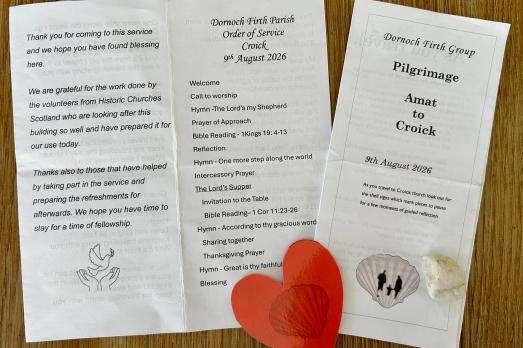 Thank you for coming to this service
and we hope you have found blessing
here.
We are grateful for the work done by
the volunteers from Historic Churches
Scotland who are looking after this
building so well and have prepared it for
our use today.
Thanks also to those that have helped
by taking part in the service and
preparing the refreshments for
afterwards. We hope you have time to
stay for a time of fellowship.
Dornoch Firth Parish
Order of Service
Croick
9th August 2026
Welcome
Call to worship
Hymn -The Lord's my Shepherd
Prayer of Approach
Bible Reading - 1Kings 19: 4-13
Reflection.
Hymn - One more step along the world
Intercessory Prayer
The Lord's Supper
Invitation to the Table
Bible Reading- 1 Cor 11:23-26
Hymn - According to thy gracious word
Sharing together
Thanksgiving Prayer
Hymn - Great is thy faithful
Blessing
Dornoch Firth Group
Pilgrimage
Amat
to
Croick
9th August 2026
As you travel to Croick church look out for
the shell signs which mark places to pause
for a few moments of guided reflection